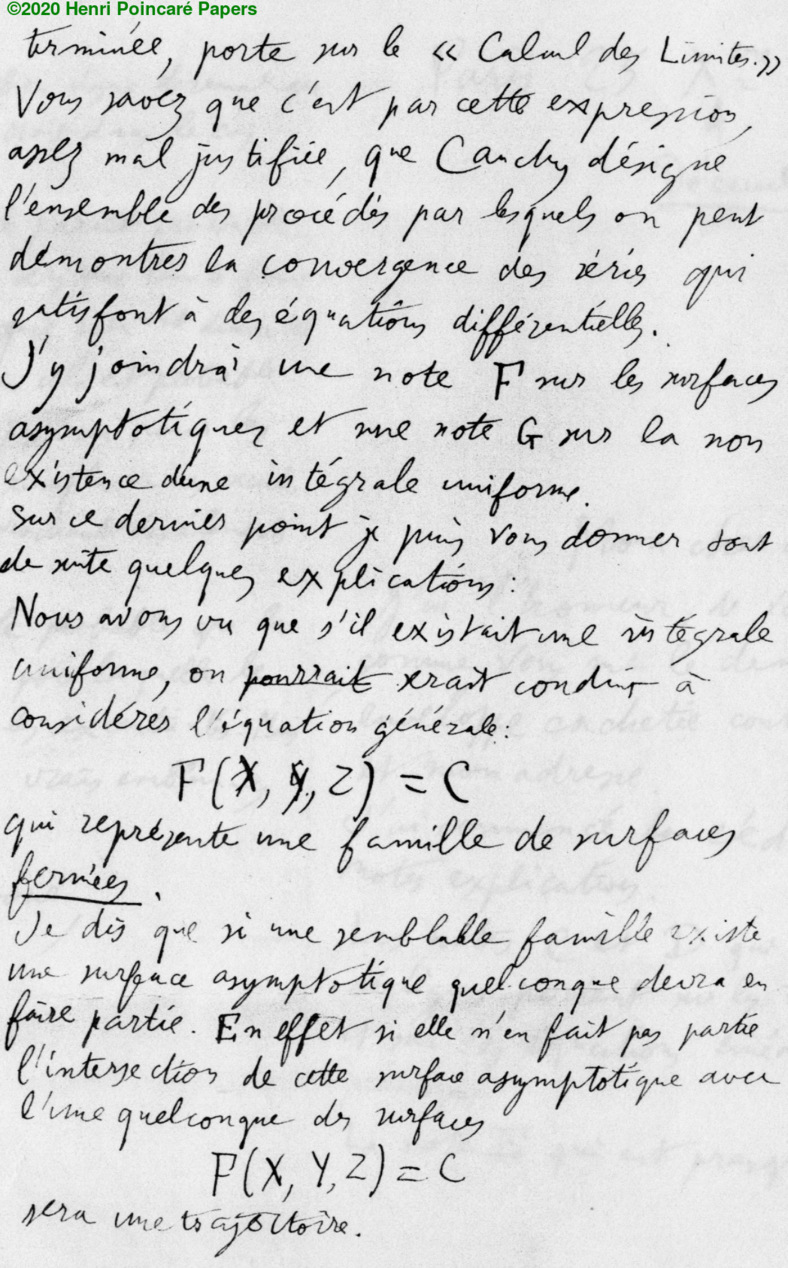 ©2020 Henri Poincaré Papers
terminée, porte sur le « Calcul des Limites. »
Vous savez que c'est par cette expression,
assez mal justifiée, que Cauchy désigne
l'ensemble des procédés par lesquels on peut
démontrer la convergence des séries qui
satisfont à des équations différentielles.
J'y joindrai une note F sur les surfaces
asymptotiques et une note G sur la non
existence d'une intégrale uniforme.
Sur ce dernier point je puis vous donner tout
de suite quelques explications :
Nous avons vu que s'il existait une intégrale
uniforme, on pourrait serait conduit à
considérer l'équation générale :
F(X, Y, Z) = C
qui représente une famille de surfaces
fermées.
Je dis que si une semblable famille existe
une surface asymptotique quelconque devra en
faire partie. En effet si elle n'en fait pas partie
l'intersection de cette surface asymptotique avec
l'une quelconque des surfaces
F(X, Y, Z) = C
sera une trajectoire.